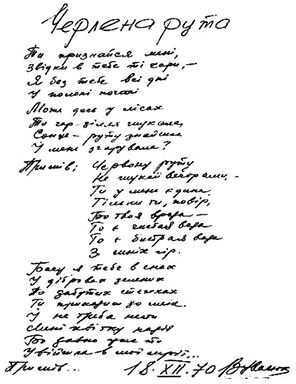 Черлена рута
Ти признайся мені,
Звідки в тебе ті чари, –
Я без тебе всі дні
У полоні печалі
Може десь у лісах
Ти чар-зілля шукала,
Сонце-руту знайшла
І мене зчарувала?
Приспів: Червону руту
Не шукай вечорами, –
Ти у мене єдина,
Тільки ти, повір,
Бо твоя врода –
То є чистая вода
То є бистрая вода
З синіх гір.
Бачу я тебе в снах
У дібровах зелених
По забутих стежках
Ти приходиш до мене.
І не треба нести
Мені квітку надії
Бо давно уже ти
Увійшла в мої мрії...
Приспів...
18.XII.70